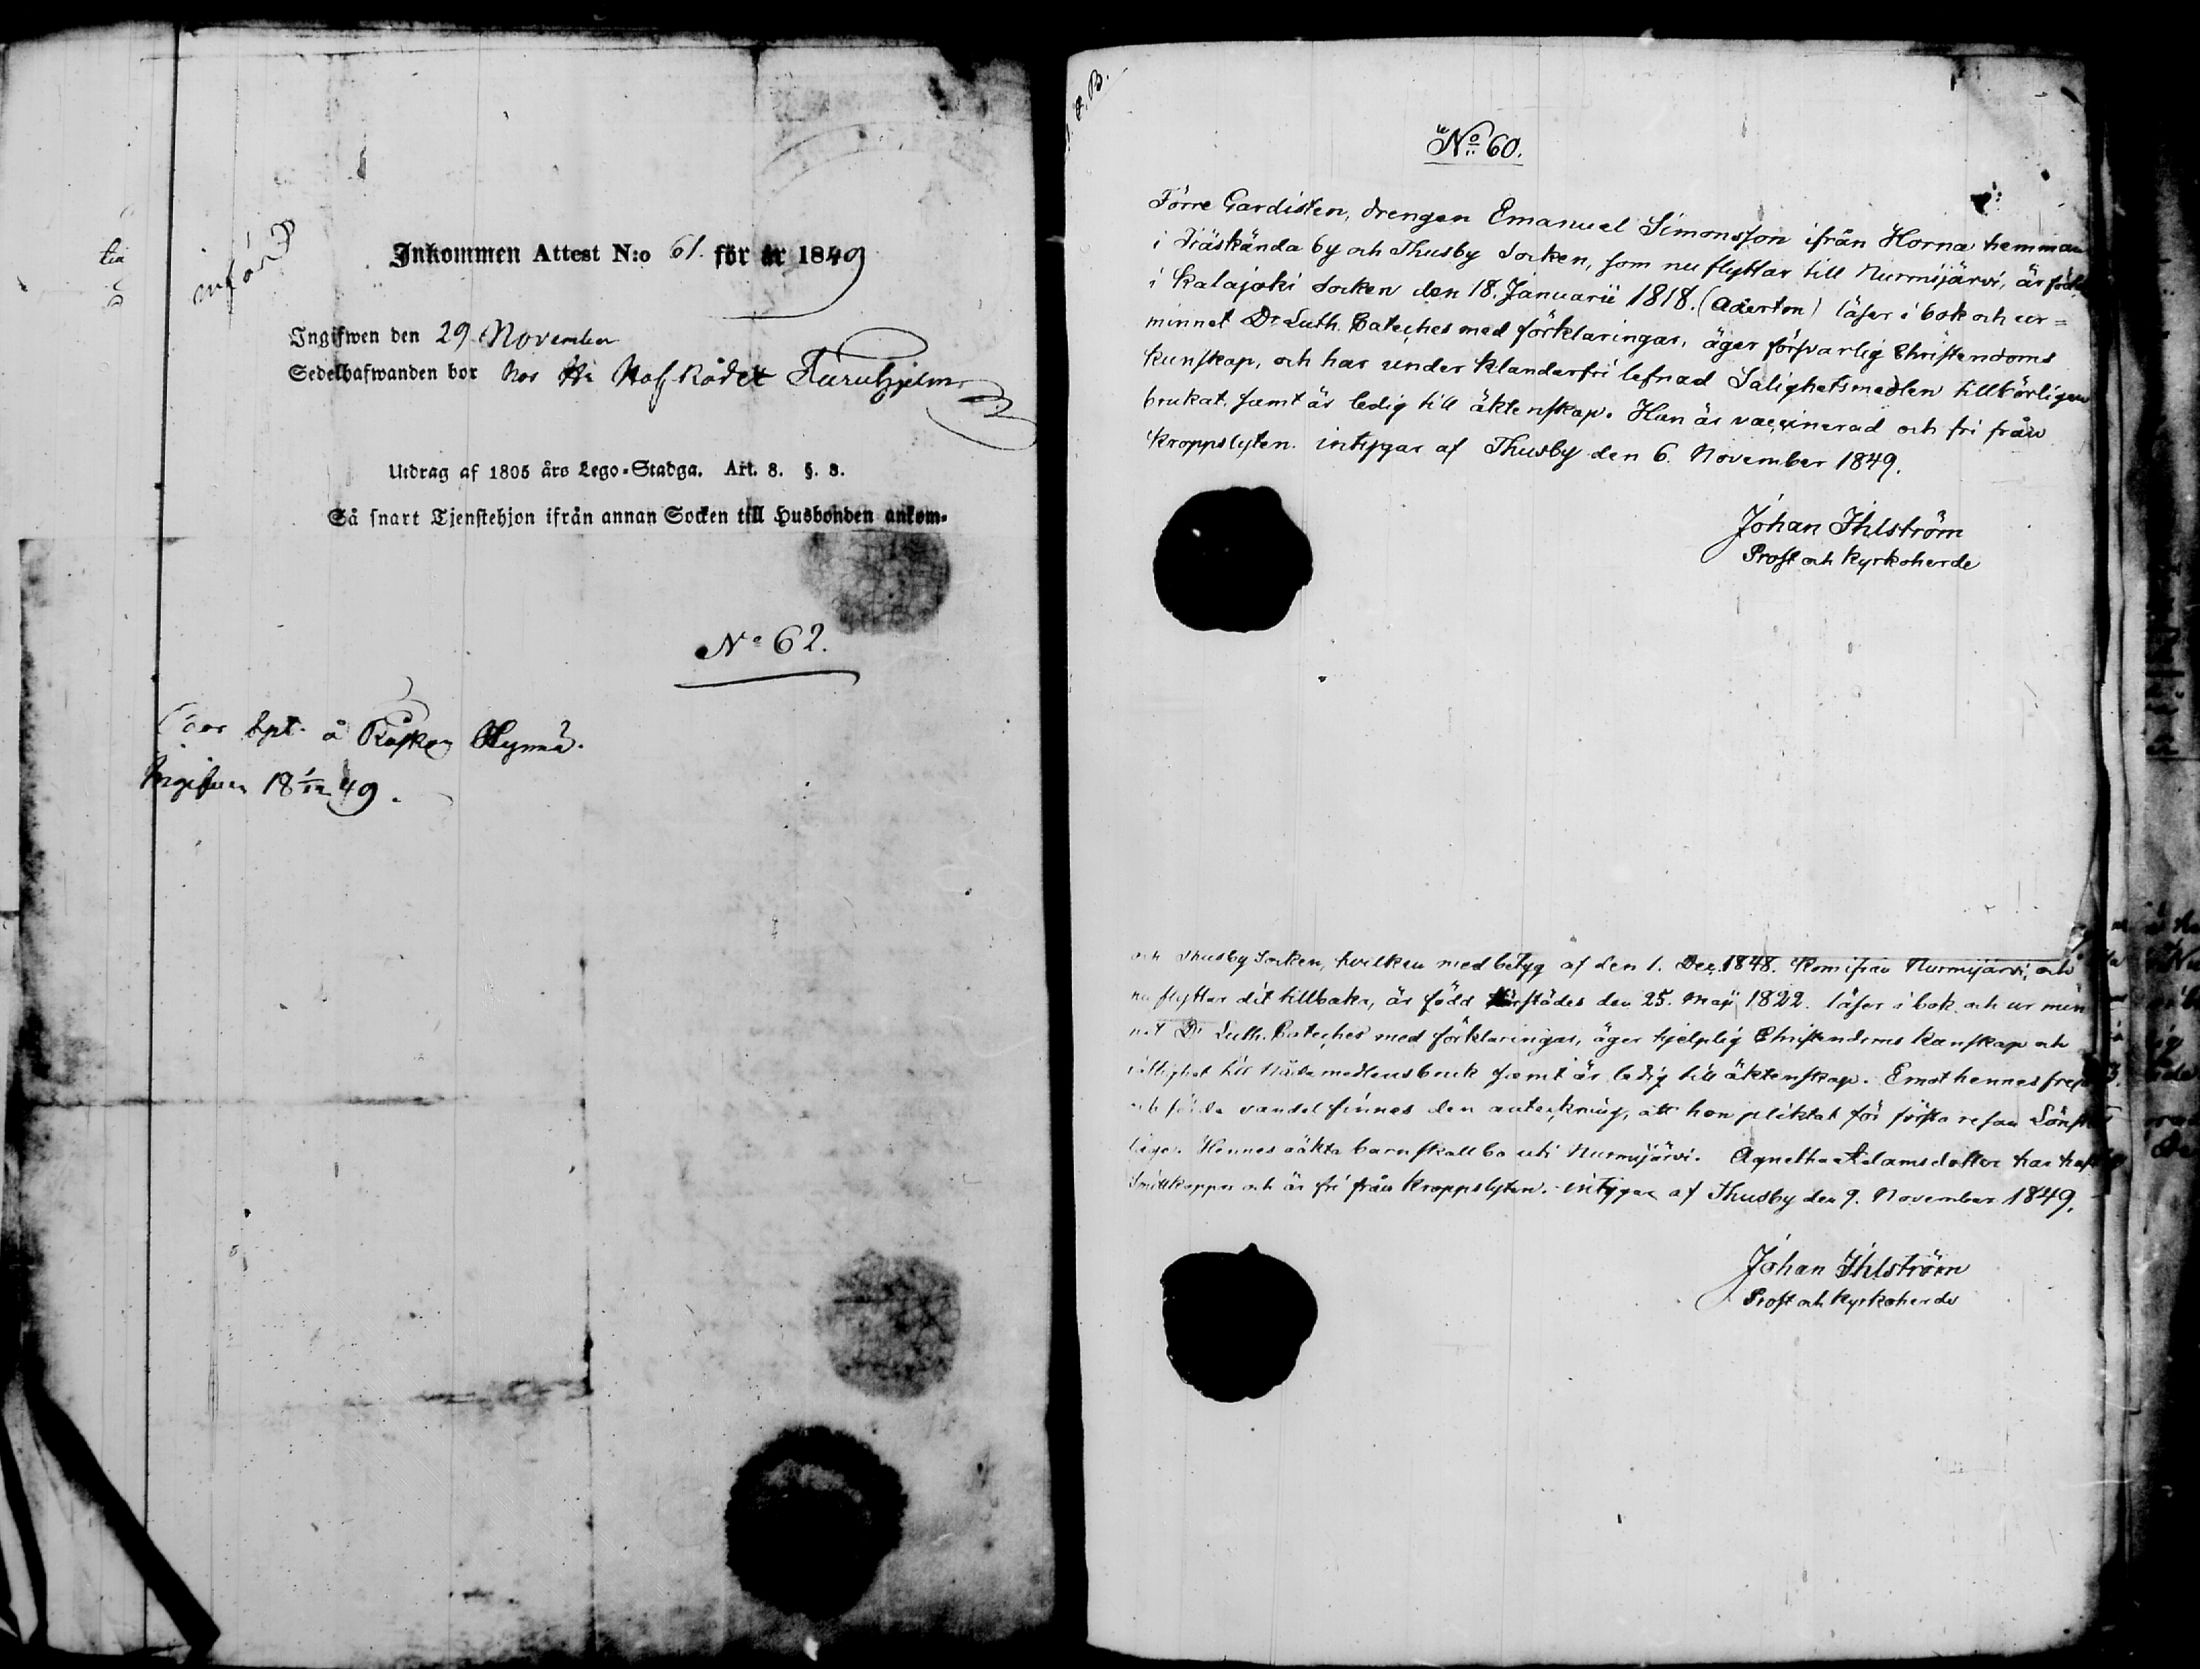 införd
Inkommen Attest N:o 61. för år 1849
Ingifwen den 29 November
Sedelhafwanden bor hos Hr Hof Rådet
Utdrag af 1805 års Lego-Stadga. Art. 8. §. 8.
Så snart Tjenstehjon ifrån annan Socken till Husbonden ankom-
No 62.
å
49.
No 60.
Förre Gardisten, drengen Emanuel Simonsson ifrån Horna hemman
i Träskända by och Thusby Socken, som nu flyttar till Nurmijärvi, är född
i Kalajoki Socken den 18. Januarii 1818. (Aderton) läser i bok och ur=
minnet Dr Luth. Cateches med förklaringar, äger försvarlig Christendoms
kunskap, och har under klanderfri lefnad Salighetsmedlen tillbörligen
brukat, samt är ledig till äktenskap. Han är vaccinerad och fri från
kroppslyten. intygar af Thusby den 6. November 1849.
Johan Ihlström
Prost och Kyrkoherde
och Thusby Socken, hvilken med betyg af den 1. Dec. 1848. kom ifrån Nurmijärvi, och
nu flyttar dit tillbaka, är född den 25. Maji 1822. läser i bok och ur min
net Dr Luth. Cateches med förklaringar, äger hjelplig Christendoms kunskap och
samt är ledig till äktenskap. Emot hennes frejd
vandel finnes den anteckning, att hon pliktat för första resan Lönska
läge. Hennes oäkta barn skall bo uti Nurmijärvi. Agnetha Adamsdotter har haft
Smittkoppor och är fri från kroppslyten. intygar af Thusby den 9. November 1849.
Johan Ihlström
Prost och Kyrkoherde